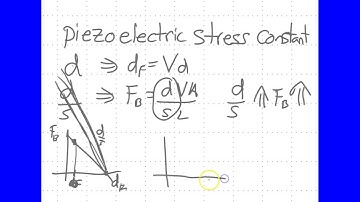 Piezoelectric Stress Constant
d ⇒ dF = Vd
d/s ⇒ FB = d/s VA/L d/s ⇑ FB ⇑
FB d/s
dF